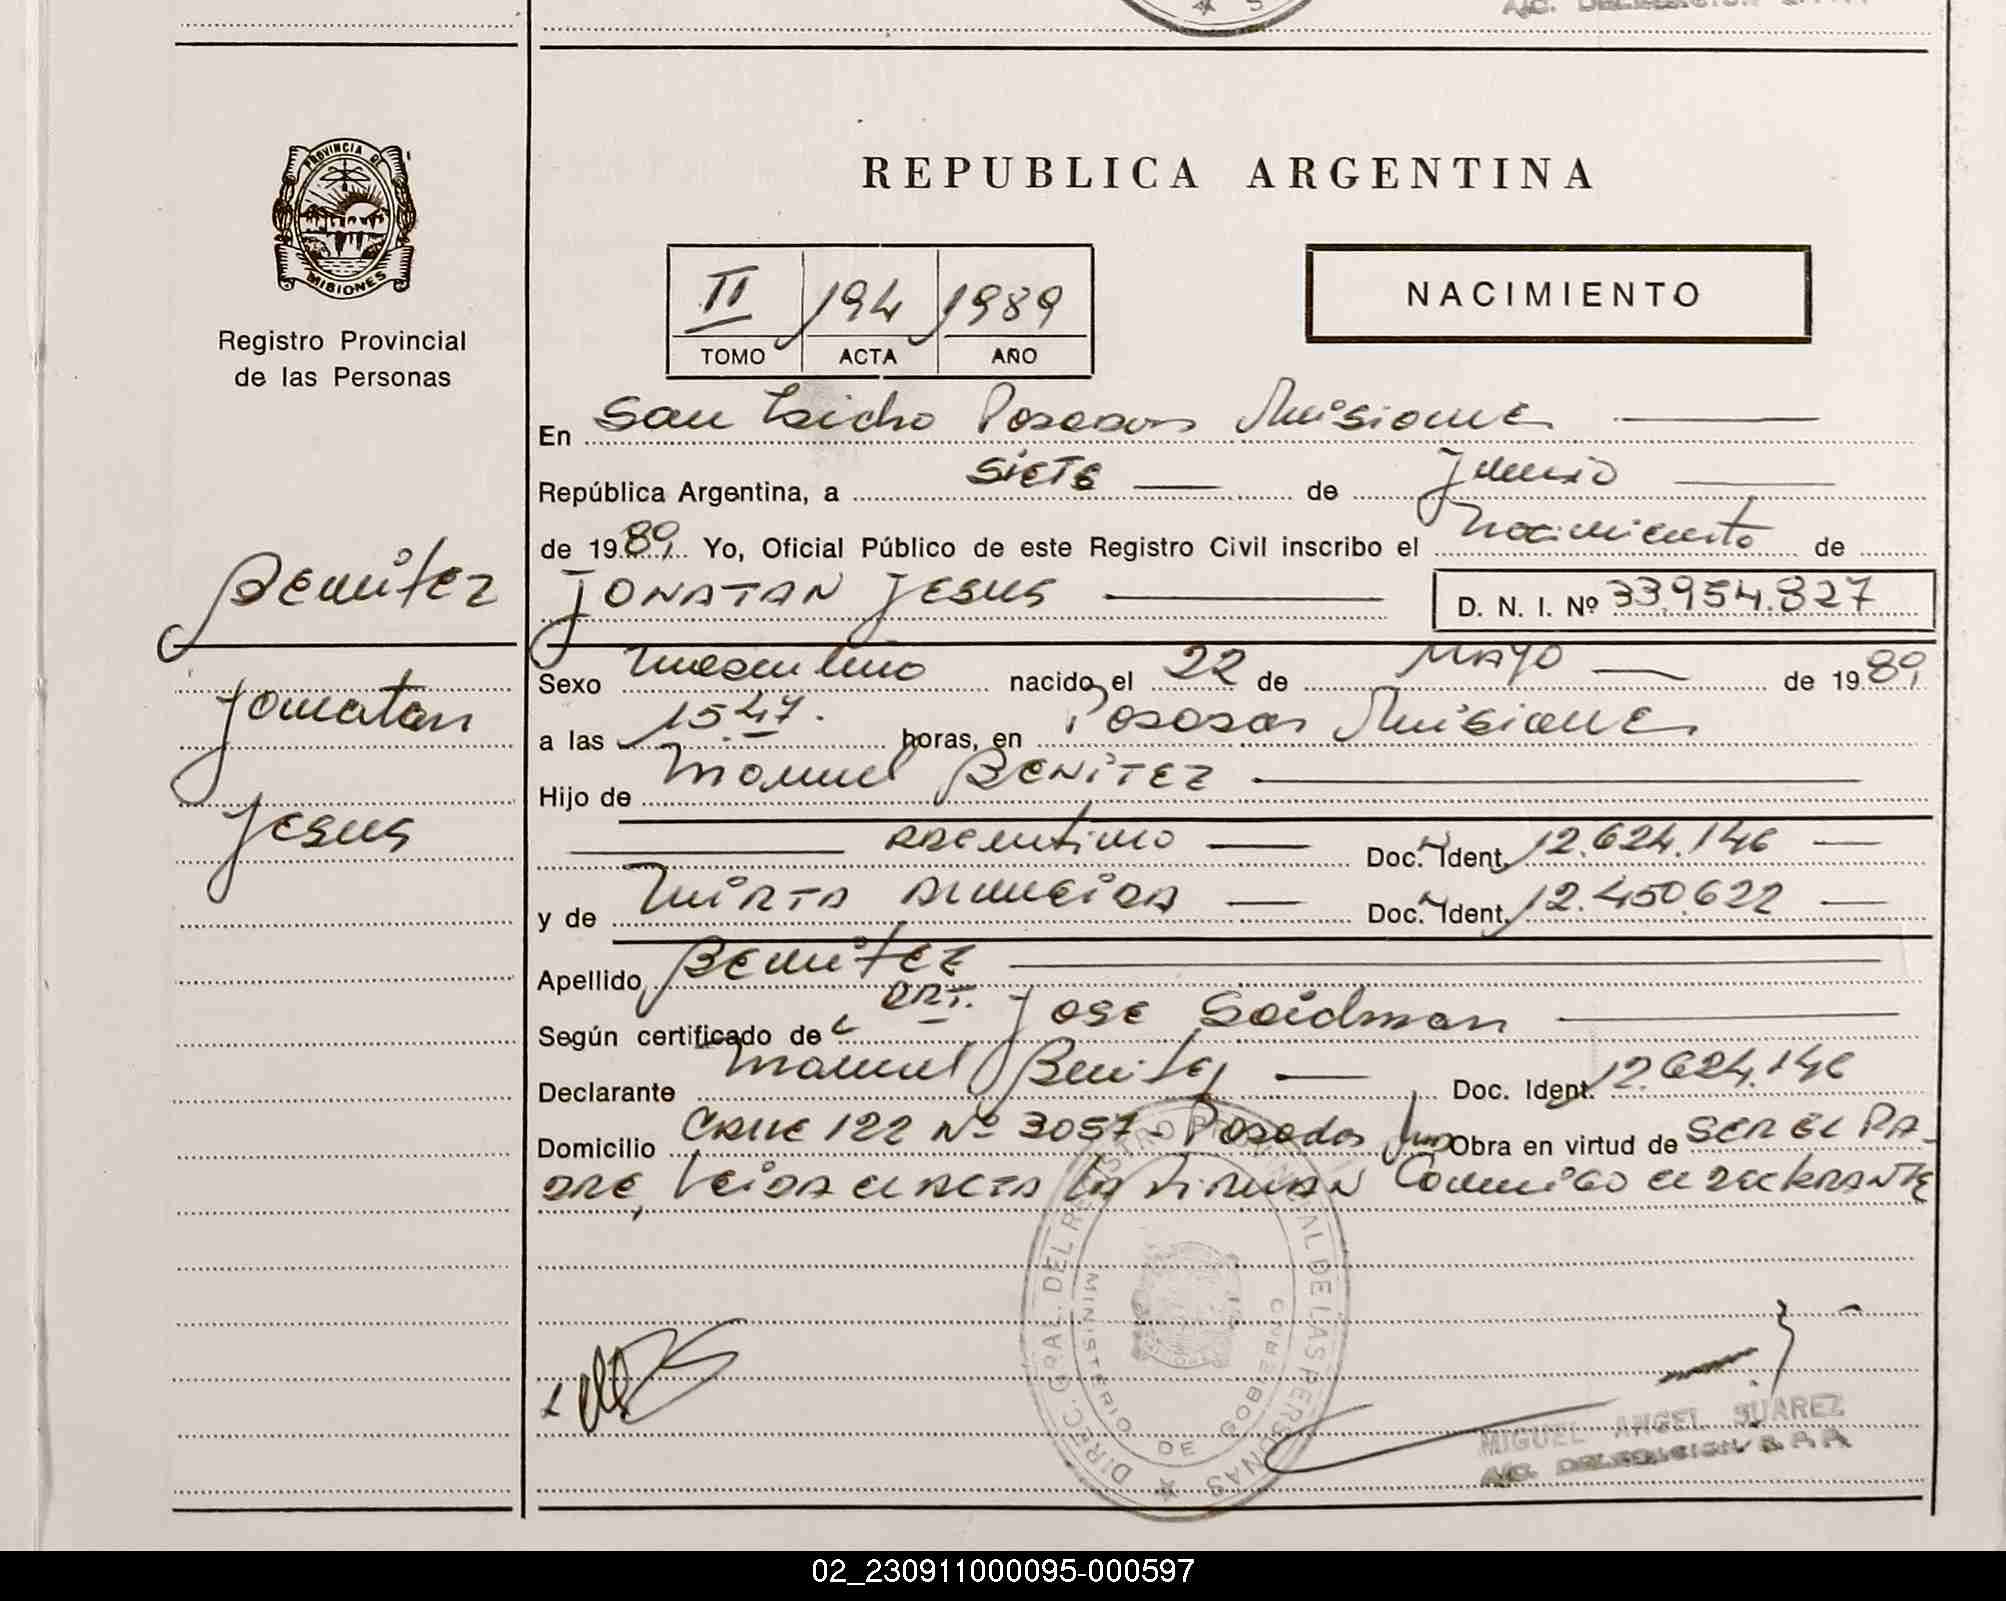 PROVINCIA DE
MISIONES
Registro Provincial
de las Personas
Benitez
Jonatan
Jesus
REPUBLICA ARGENTINA
II 194 1989
TOMO ACTA AÑO
NACIMIENTO
En San Isidro Posadas Misiones
República Argentina, a siete de Junio
de 1989, Yo, Oficial Público de este Registro Civil inscribo el Nacimiento de
JONATAN JESUS D. N. I. Nº 33.954.827
Sexo masculino nacido el 22 de MAYO de 1989,
a las 15.47. horas, en Posadas Misiones
Hijo de Manuel BENITEZ
argentino Doc. Ident. 12.624.146
y de Mirta Doc. Ident. 12.450.622
Apellido BENITEZ
Según certificado de Jose Seidman
Declarante Manuel Benitez Doc. Ident. 12.624.146
Domicilio Calle 122 Nº 3057 - Posadas Obra en virtud de SER EL PA-
DRE, Leida el acta la firman conmigo el declarante
DIREC. GRAL. DEL REGISTRO PROVINCIAL DE LAS PERSONAS
MINISTERIO DE GOBIERNO
MIGUEL ANGEL SUAREZ
A/C. DELEGACION
02_230911000095-000597